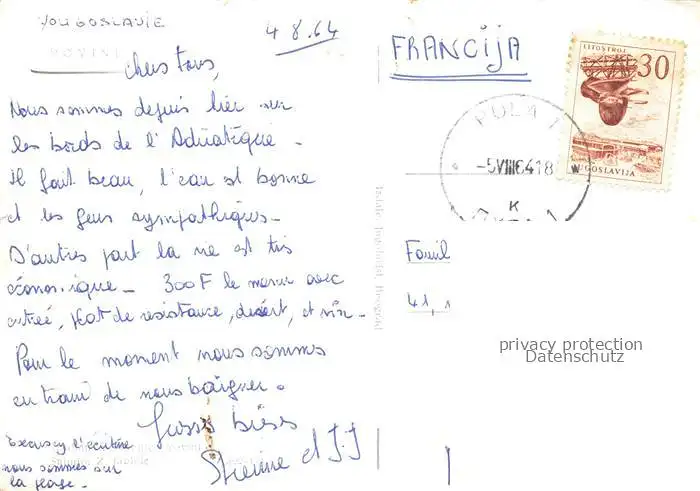 YOUGOSLAVIE
4 8.64
Chers tous,
Nous sommes depuis hier sur
les bords de l'Adriatique.
Il fait beau, l'eau est bonne
et les gens sympathiques.
D'autres part la vie est très
économique. 300F le menu avec
entrée, plat de resistance, désert, et vin.
Pour le moment nous sommes
en train de nous baigner.
Gross bises
et J.J
Excusez l'écriture
nous sommes sur
la plage.
FRANCIJA
LITOSTROJ
30
JUGOSLAVIJA
PULA 1
-5VIII6418
K
Famil
41, 1
privacy protection
Datenschutz